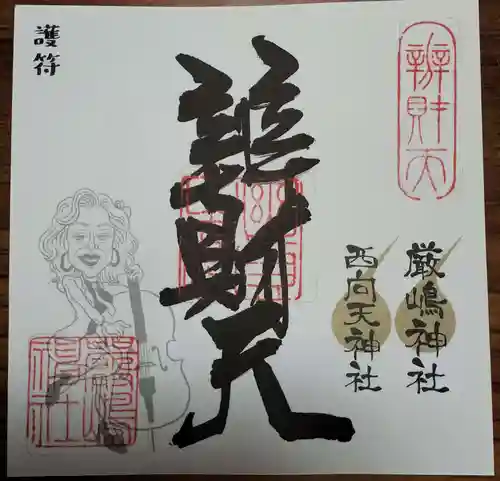 辨財天
厳嶋神社
西向天神社
辨財天
護符